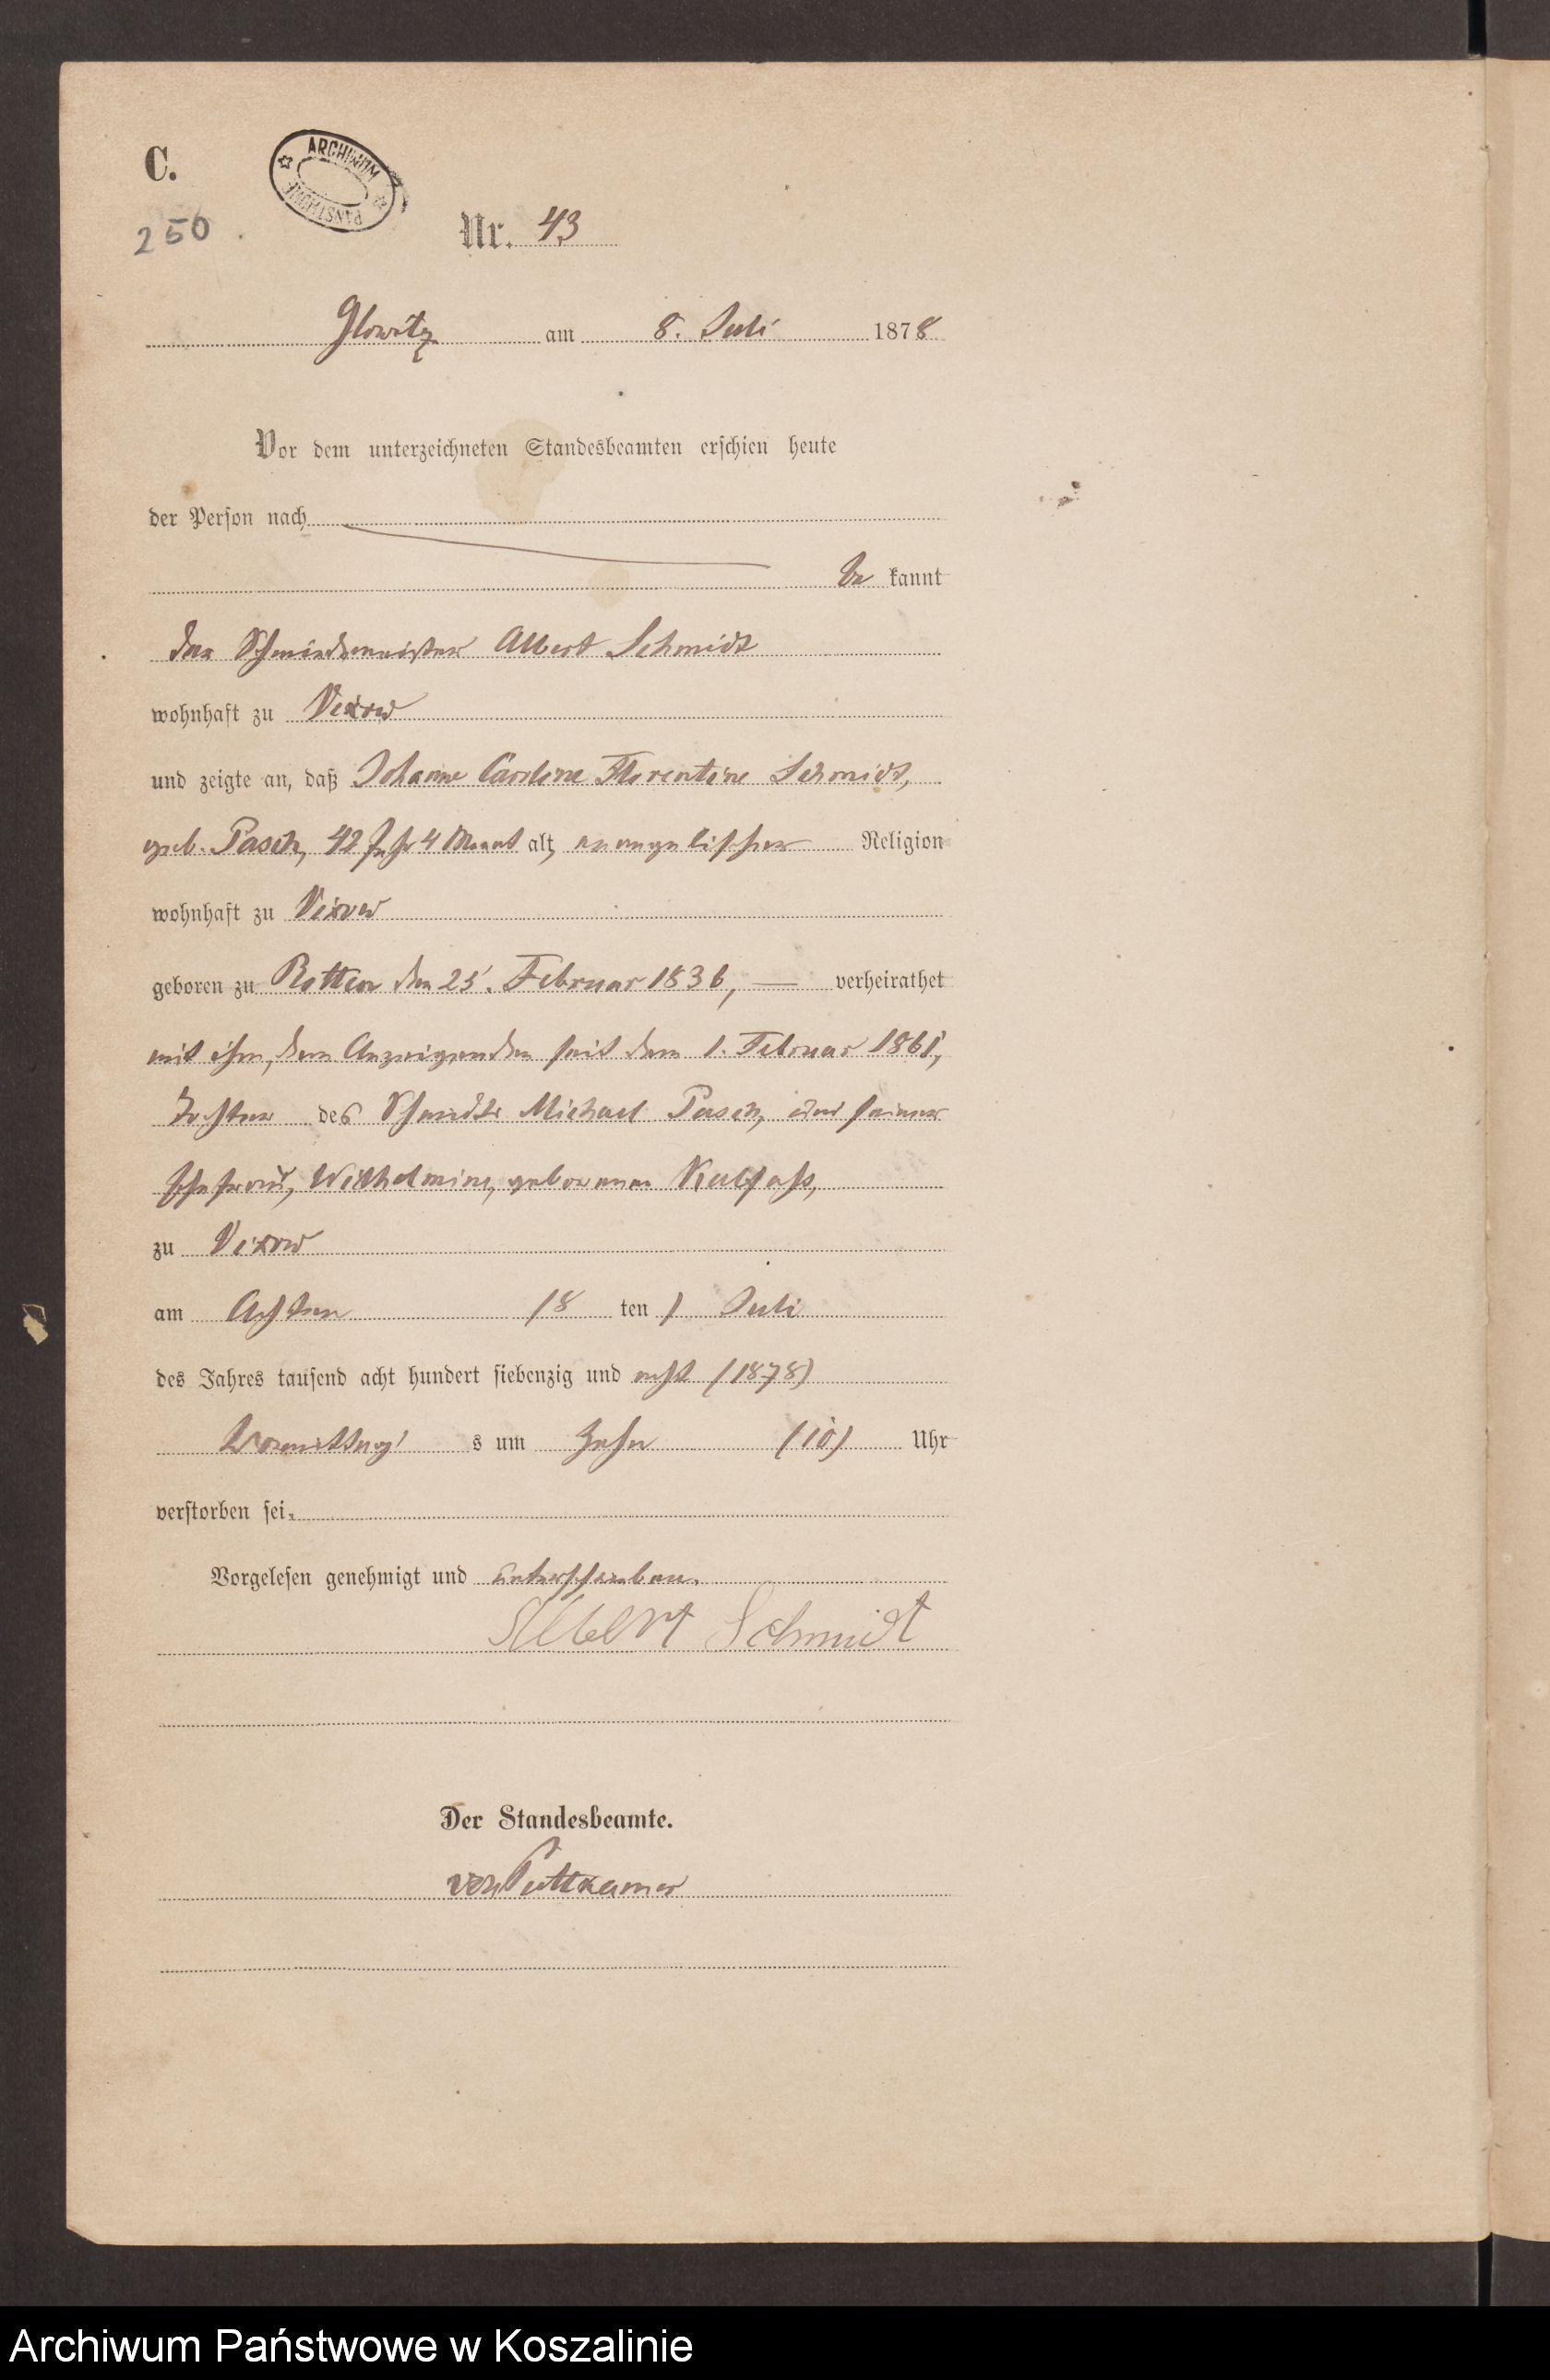 C.
ARCHIWUM PAŃSTWOWE
250.
Nr. 43
Glowitz am 8. Juli 1878
Vor dem unterzeichneten Standesbeamten erschien heute
der Person nach
be kannt
der Schmiedemeister Albert Schmidt
wohnhaft zu Vixow
und zeigte an, daß Johanne Caroline Florentine Schmidt,
geb. Pasch, 42 Jahr 4 Monat alt, evangelischer Religion
wohnhaft zu Vixow
geboren zu Rotten den 25. Februar 1836, — verheirathet
mit ihm, dem Anzeigenden seit dem 1. Februar 1861,
Tochter des Schmidts Michael Pasch, und seiner
Ehefrau, Wilhelmine, geborenen
zu Vixow
am Achten (8 ten) Juli
des Jahres tausend acht hundert siebenzig und acht (1878)
Vormittags um zehn (10) Uhr
verstorben sei.
Vorgelesen genehmigt und unterschrieben.
Albert Schmidt
Der Standesbeamte.
von Puttkamer
Archiwum Państwowe w Koszalinie